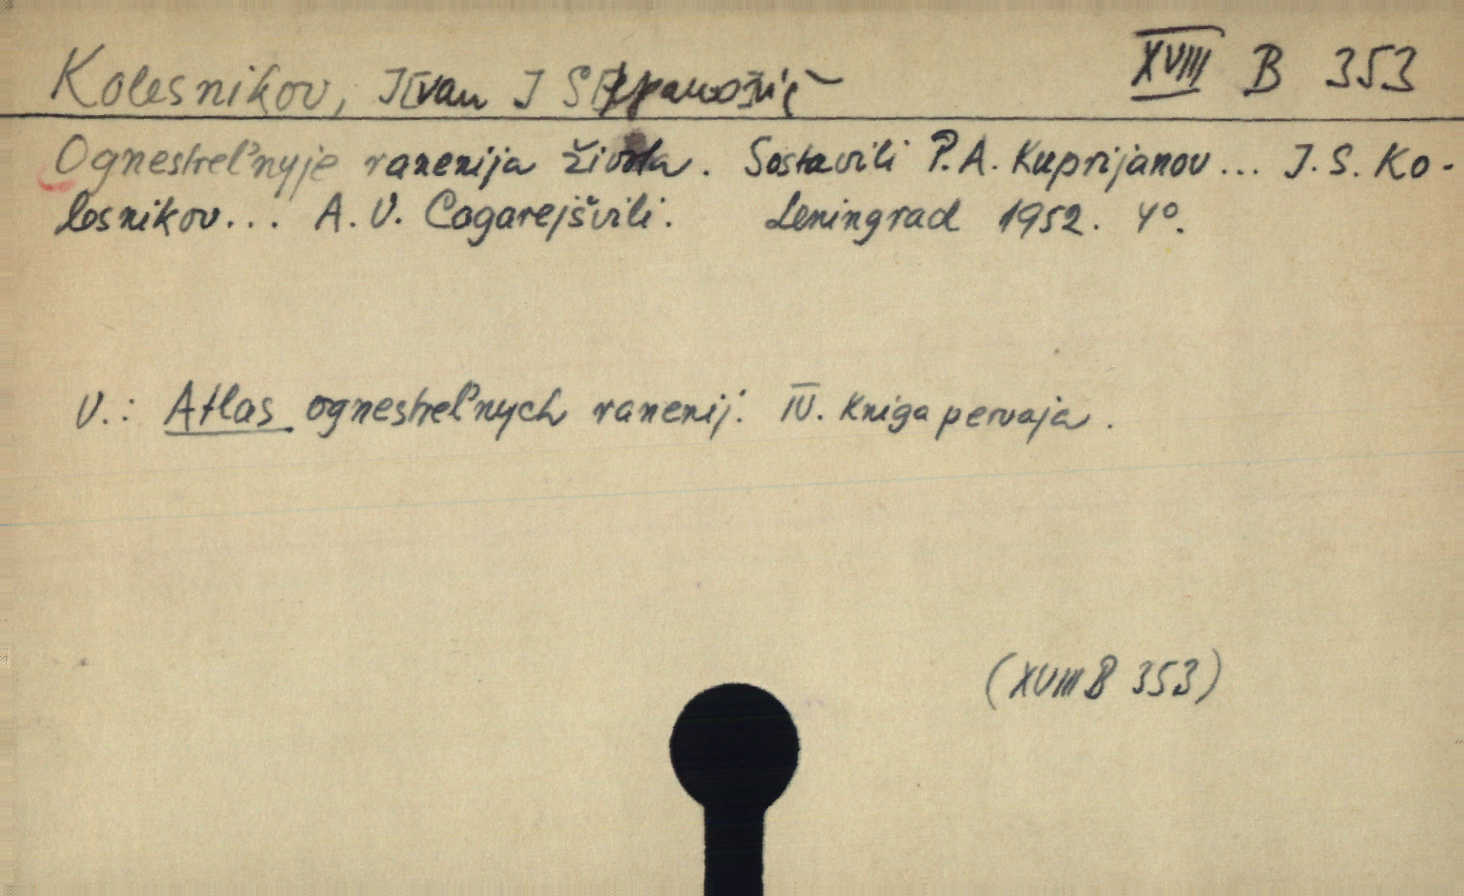 Kolesnikov, Ivan XVIII B 353
Ognestrel'nyje ranenija života. Sostavili P. A. Kuprijanov... I. S. Ko-
lesnikov... A. V. Cagarejšvili. Leningrad 1952. 4°.
V.: Atlas ognestrel'nych ranenij. IV. Kniga pervaja.
(XVIII B 353)